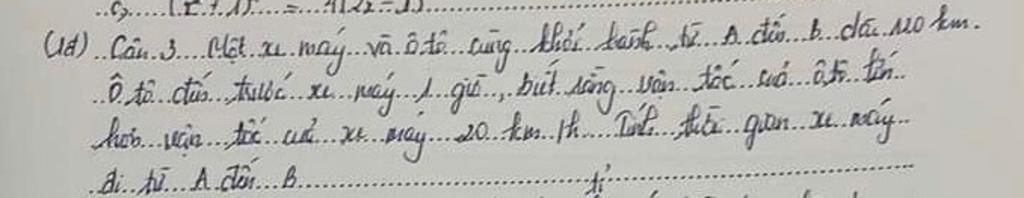 (1đ) Câu 3 Một xe máy và ô tô cùng khởi hành từ A đến B dài 120 km.
Ô tô đến trước xe máy 1 giờ, biết rằng vận tốc của ô tô lớn
hơn vận tốc của xe máy 20 km/h Tính thời gian xe máy
đi từ A đến B